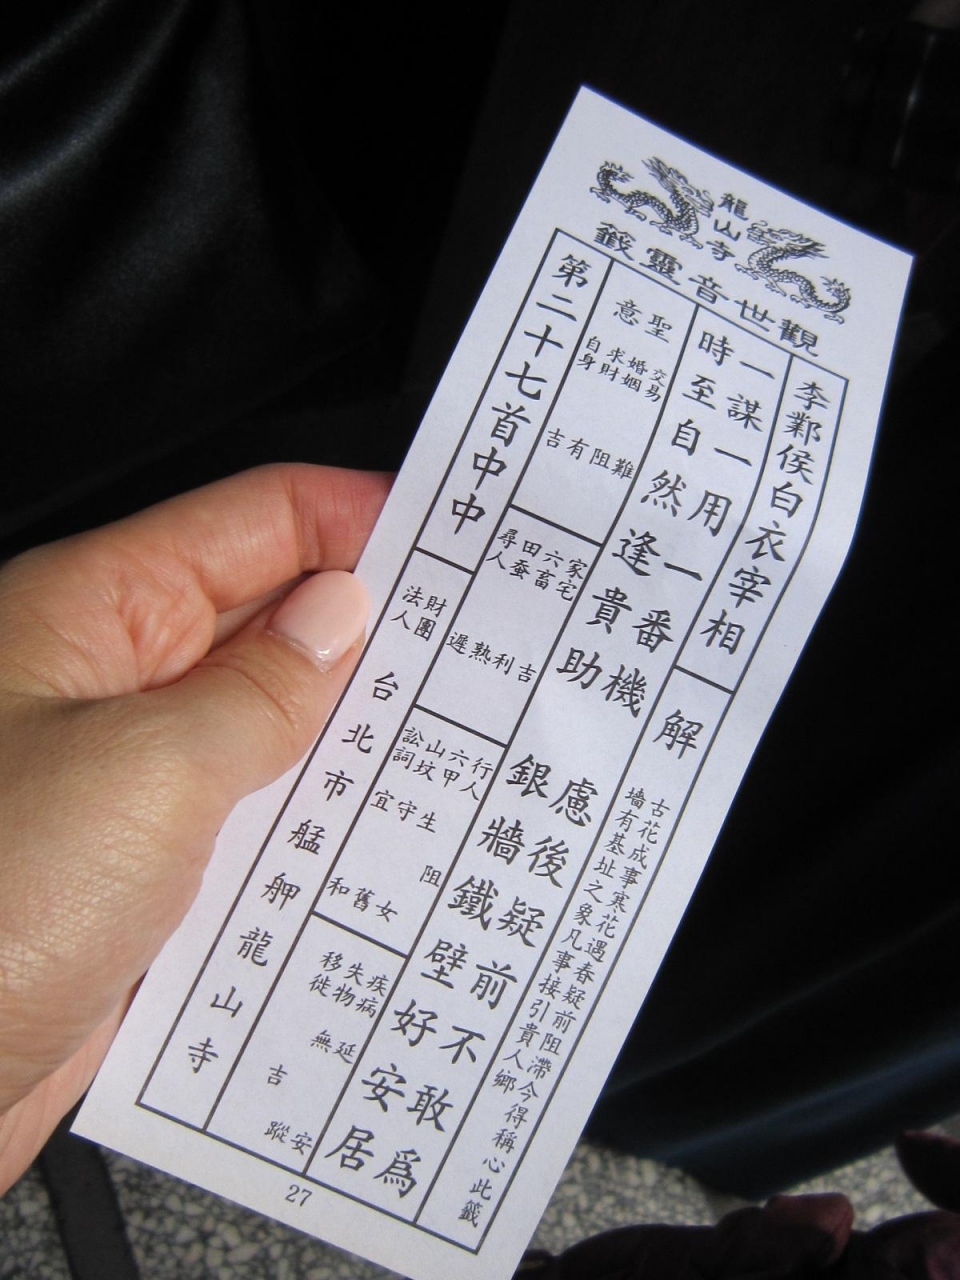 龍山寺
觀世音靈籤
李鄴侯白衣宰相
解
古花成事寒花遇春疑前阻滯今得稱心此籤
墻有基址之象凡事接引貴人鄉
一謀一用一番機 慮後疑前不敢為
時至自然逢貴助 銀牆鐵壁好安居
聖意
交易 難
婚姻 阻
求財 有
自身 吉
家宅 吉
六畜 利
田蚕 熟
尋人 遲
行人 阻
六甲 生女
山坟 守舊
訟詞 宜和
疾病 延安
失物 無蹤
移徙 吉
第二十七首中中
財團法人
台北市艋舺龍山寺
27